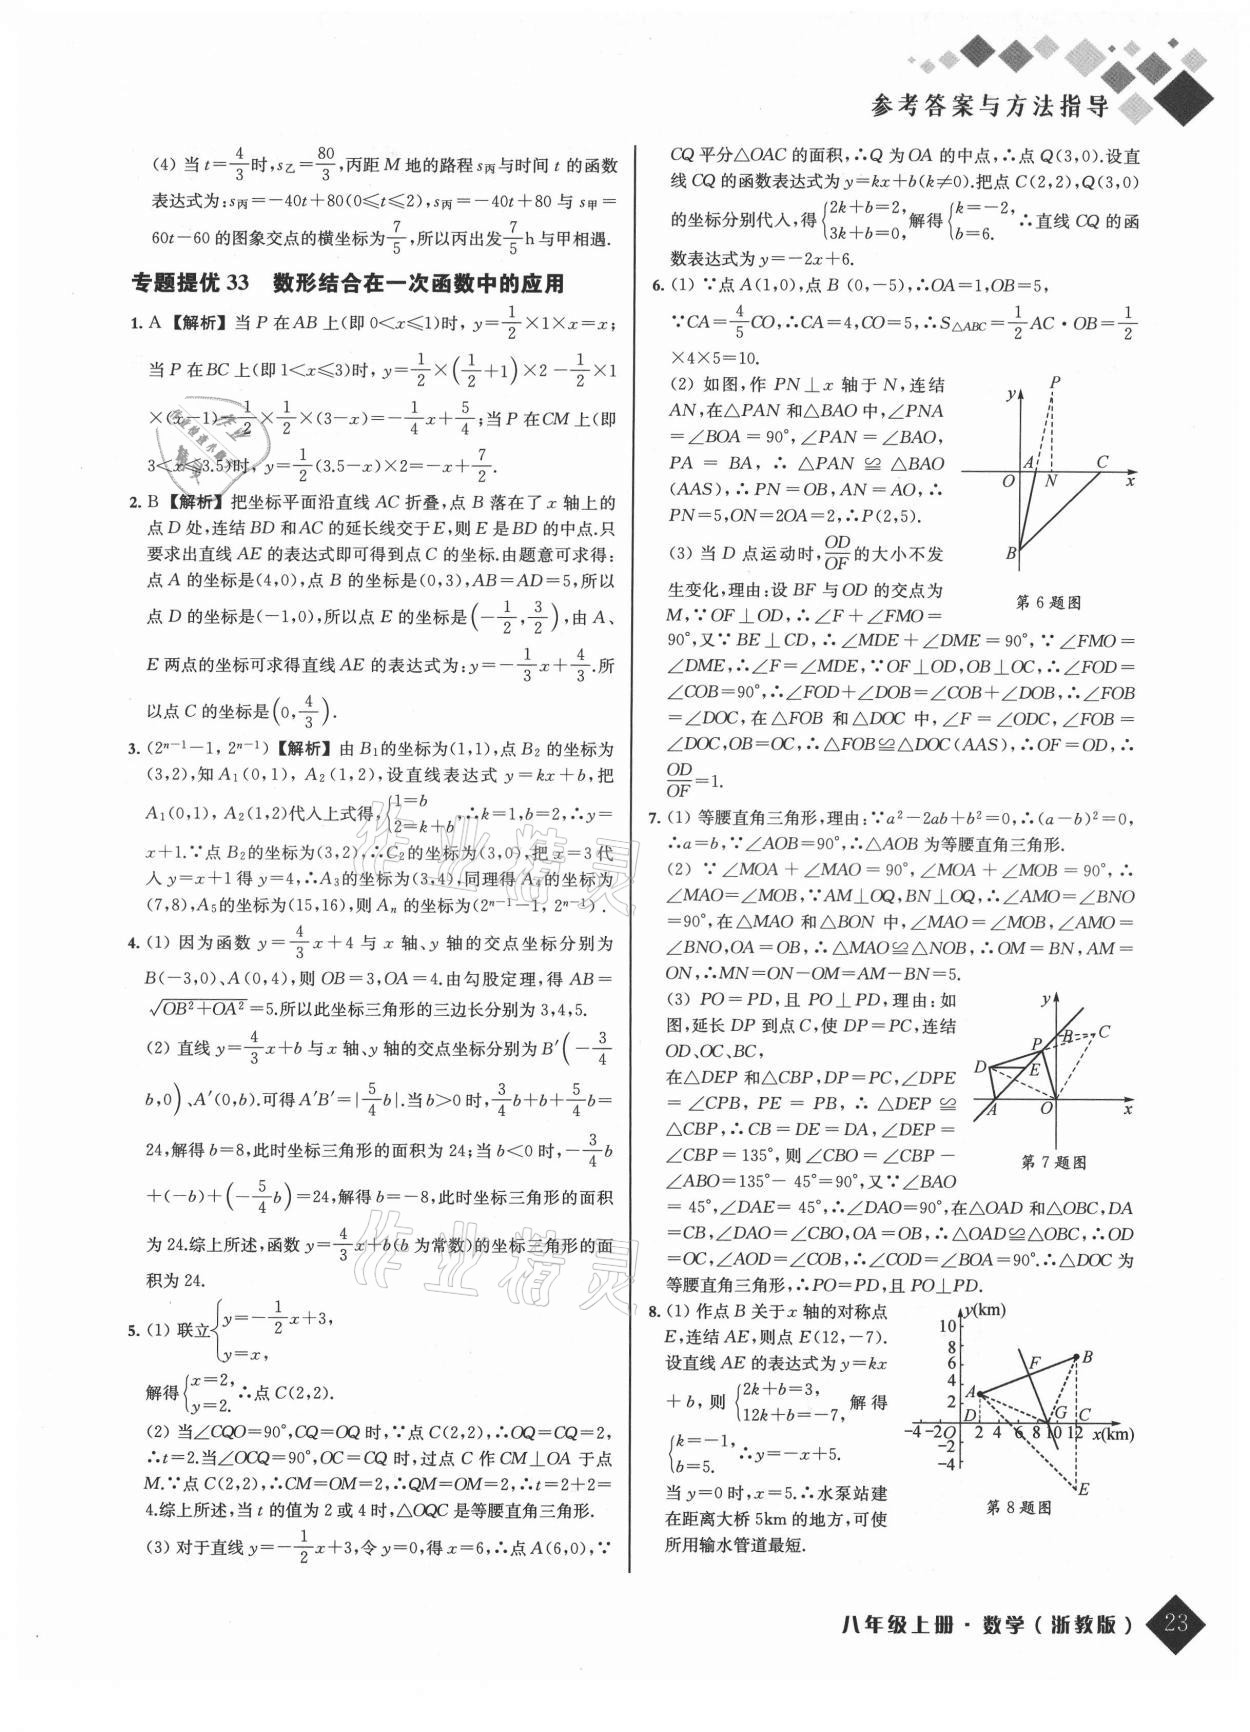 参考答案与方法指导
(4) 当 t=4/3时,s乙=80/3,丙距 M 地的路程 s丙与时间 t 的函数
表达式为:s丙=-40t+80(0≤t≤2),s丙=-40t+80 与 s甲=
60t-60 的图象交点的横坐标为7/5,所以丙出发7/5h与甲相遇.
专题提优 33 数形结合在一次函数中的应用
1. A 【解析】当 P 在AB 上(即 0<x≤1)时, y=1/2×1×x=x;
当 P 在BC 上(即 1<x≤3)时, y=1/2×(1/2+1)×2-1/2×1
×(x-1)-1/2×1/2×(3-x)=-1/4x+5/4;当 P 在CM 上(即
3<x≤3.5)时, y=1/2(3.5-x)×2=-x+7/2.
2. B 【解析】把坐标平面沿直线 AC 折叠,点 B 落在了 x 轴上的
点 D 处,连结 BD 和 AC 的延长线交于E,则 E 是BD 的中点.只
要求出直线 AE 的表达式即可得到点 C 的坐标.由题意可求得:
点 A 的坐标是(4,0),点 B 的坐标是(0,3),AB=AD=5,所以
点 D 的坐标是(-1,0),所以点 E 的坐标是(-1/2,3/2),由 A、
E 两点的坐标可求得直线 AE 的表达式为:y=-1/3x+4/3.所
以点 C 的坐标是(0,4/3).
3. (2ⁿ⁻¹-1, 2ⁿ⁻¹)【解析】由 B₁的坐标为(1,1),点 B₂ 的坐标为
(3,2),知 A₁(0,1), A₂(1,2),设直线表达式 y=kx+b,把
A₁(0,1), A₂(1,2)代入上式得,{1=b 2=k+b,∴k=1,b=2,∴y=
x+1.∵点 B₂的坐标为(3,2),∴C₂的坐标为(3,0),把 x=3 代
入 y=x+1得 y=4,∴A₃的坐标为(3,4),同理得 A₄的坐标为
(7,8),A₅的坐标为(15,16),则 Aₙ 的坐标为(2ⁿ⁻¹-1, 2ⁿ⁻¹).
4. (1) 因为函数 y=4/3x+4 与 x 轴、y 轴的交点坐标分别为
B(-3,0)、A(0,4),则 OB=3,OA=4.由勾股定理,得 AB=
√(OB²+OA²)=5.所以此坐标三角形的三边长分别为 3,4,5.
(2) 直线 y=4/3x+b 与 x 轴、y 轴的交点坐标分别为 B′(-3/4
b,0)、A′(0,b).可得A′B′=|5/4b|.当b>0时,3/4b+b+5/4b=
24,解得 b=8,此时坐标三角形的面积为 24;当 b<0 时,-3/4b
+(-b)+(-5/4b)=24,解得 b=-8,此时坐标三角形的面积
为 24.综上所述,函数 y=4/3x+b(b 为常数)的坐标三角形的面
积为 24.
5. (1) 联立{y=-1/2x+3, y=x,
解得{x=2, y=2. ∴点 C(2,2).
(2) 当∠CQO=90°,CQ=OQ 时,∵点 C(2,2),∴OQ=CQ=2,
∴t=2.当∠OCQ=90°,OC=CQ 时,过点 C 作 CM⊥OA 于点
M.∵点 C(2,2),∴CM=OM=2,∴QM=OM=2,∴t=2+2=
4.综上所述,当 t 的值为 2 或 4 时,△OQC 是等腰直角三角形.
(3) 对于直线 y=-1/2x+3,令 y=0,得 x=6,∴点 A(6,0),∵
CQ 平分△OAC 的面积,∴Q 为 OA 的中点,∴点 Q(3,0).设直
线 CQ 的函数表达式为 y=kx+b(k≠0).把点 C(2,2),Q(3,0)
的坐标分别代入,得{2k+b=2, 3k+b=0,解得{k=-2, b=6. ∴直线 CQ 的函
数表达式为 y=-2x+6.
6. (1) ∵点 A(1,0),点 B (0,-5),∴OA=1,OB=5,
∵CA=4/5CO,∴CA=4,CO=5,∴S△ABC=1/2AC·OB=1/2
×4×5=10.
(2) 如图,作 PN⊥x 轴于 N,连结
AN,在△PAN 和△BAO 中,∠PNA
=∠BOA=90°,∠PAN=∠BAO,
PA=BA,∴△PAN≌△BAO
(AAS),∴PN=OB,AN=AO,∴
PN=5,ON=2OA=2,∴P(2,5).
(3) 当 D 点运动时,OD/OF的大小不发
生变化,理由:设 BF 与 OD 的交点为
y
P
A
C
O
N
x
B
第 6 题图
M,∵OF⊥OD,∴∠F+∠FMO=
90°,又∵BE⊥CD,∴∠MDE+∠DME=90°,∵∠FMO=
∠DME,∴∠F=∠MDE,∵OF⊥OD,OB⊥OC,∴∠FOD=
∠COB=90°,∴∠FOD+∠DOB=∠COB+∠DOB,∴∠FOB
=∠DOC,在△FOB 和△DOC 中,∠F=∠ODC,∠FOB=
∠DOC,OB=OC,∴△FOB≌△DOC(AAS),∴OF=OD,∴
OD/OF=1.
7. (1) 等腰直角三角形,理由:∵a²-2ab+b²=0,∴(a-b)²=0,
∴a=b,∵∠AOB=90°,∴△AOB 为等腰直角三角形.
(2) ∵∠MOA+∠MAO=90°,∠MOA+∠MOB=90°,∴
∠MAO=∠MOB,∵AM⊥OQ,BN⊥OQ,∴∠AMO=∠BNO
=90°,在△MAO 和△BON 中,∠MAO=∠MOB,∠AMO=
∠BNO,OA=OB,∴△MAO≌△NOB,∴OM=BN,AM=
ON,∴MN=ON-OM=AM-BN=5.
(3) PO=PD,且 PO⊥PD,理由:如
图,延长 DP 到点 C,使 DP=PC,连结
OD、OC、BC,
在△DEP 和△CBP,DP=PC,∠DPE
=∠CPB,PE=PB,∴△DEP≌
△CBP,∴CB=DE=DA,∠DEP=
∠CBP=135°,则∠CBO=∠CBP-
∠ABO=135°-45°=90°,又∵∠BAO
y
P
B
C
D
E
A
O
x
第 7 题图
=45°,∠DAE=45°,∴∠DAO=90°,在△OAD 和△OBC,DA
=CB,∠DAO=∠CBO,OA=OB,∴△OAD≌△OBC,∴OD
=OC,∠AOD=∠COB,∴∠COD=∠BOA=90°.∴△DOC 为
等腰直角三角形,∴PO=PD,且 PO⊥PD.
8. (1) 作点 B 关于 x 轴的对称点
E,连结 AE,则点 E(12,-7).
设直线 AE 的表达式为 y=kx
+b,则{2k+b=3, 12k+b=-7,解得
{k=-1, b=5. ∴y=-x+5.
当 y=0 时,x=5.∴水泵站建
在距离大桥 5km 的地方,可使
所用输水管道最短.
y(km)
10
8
6
4
2
A
F
B
D
G
C
-4 -2 O 2 4 6 8 10 12 x(km)
-2
-4
E
第 8 题图
作业精灵
作业精灵
八年级上册·数学(浙教版)
23